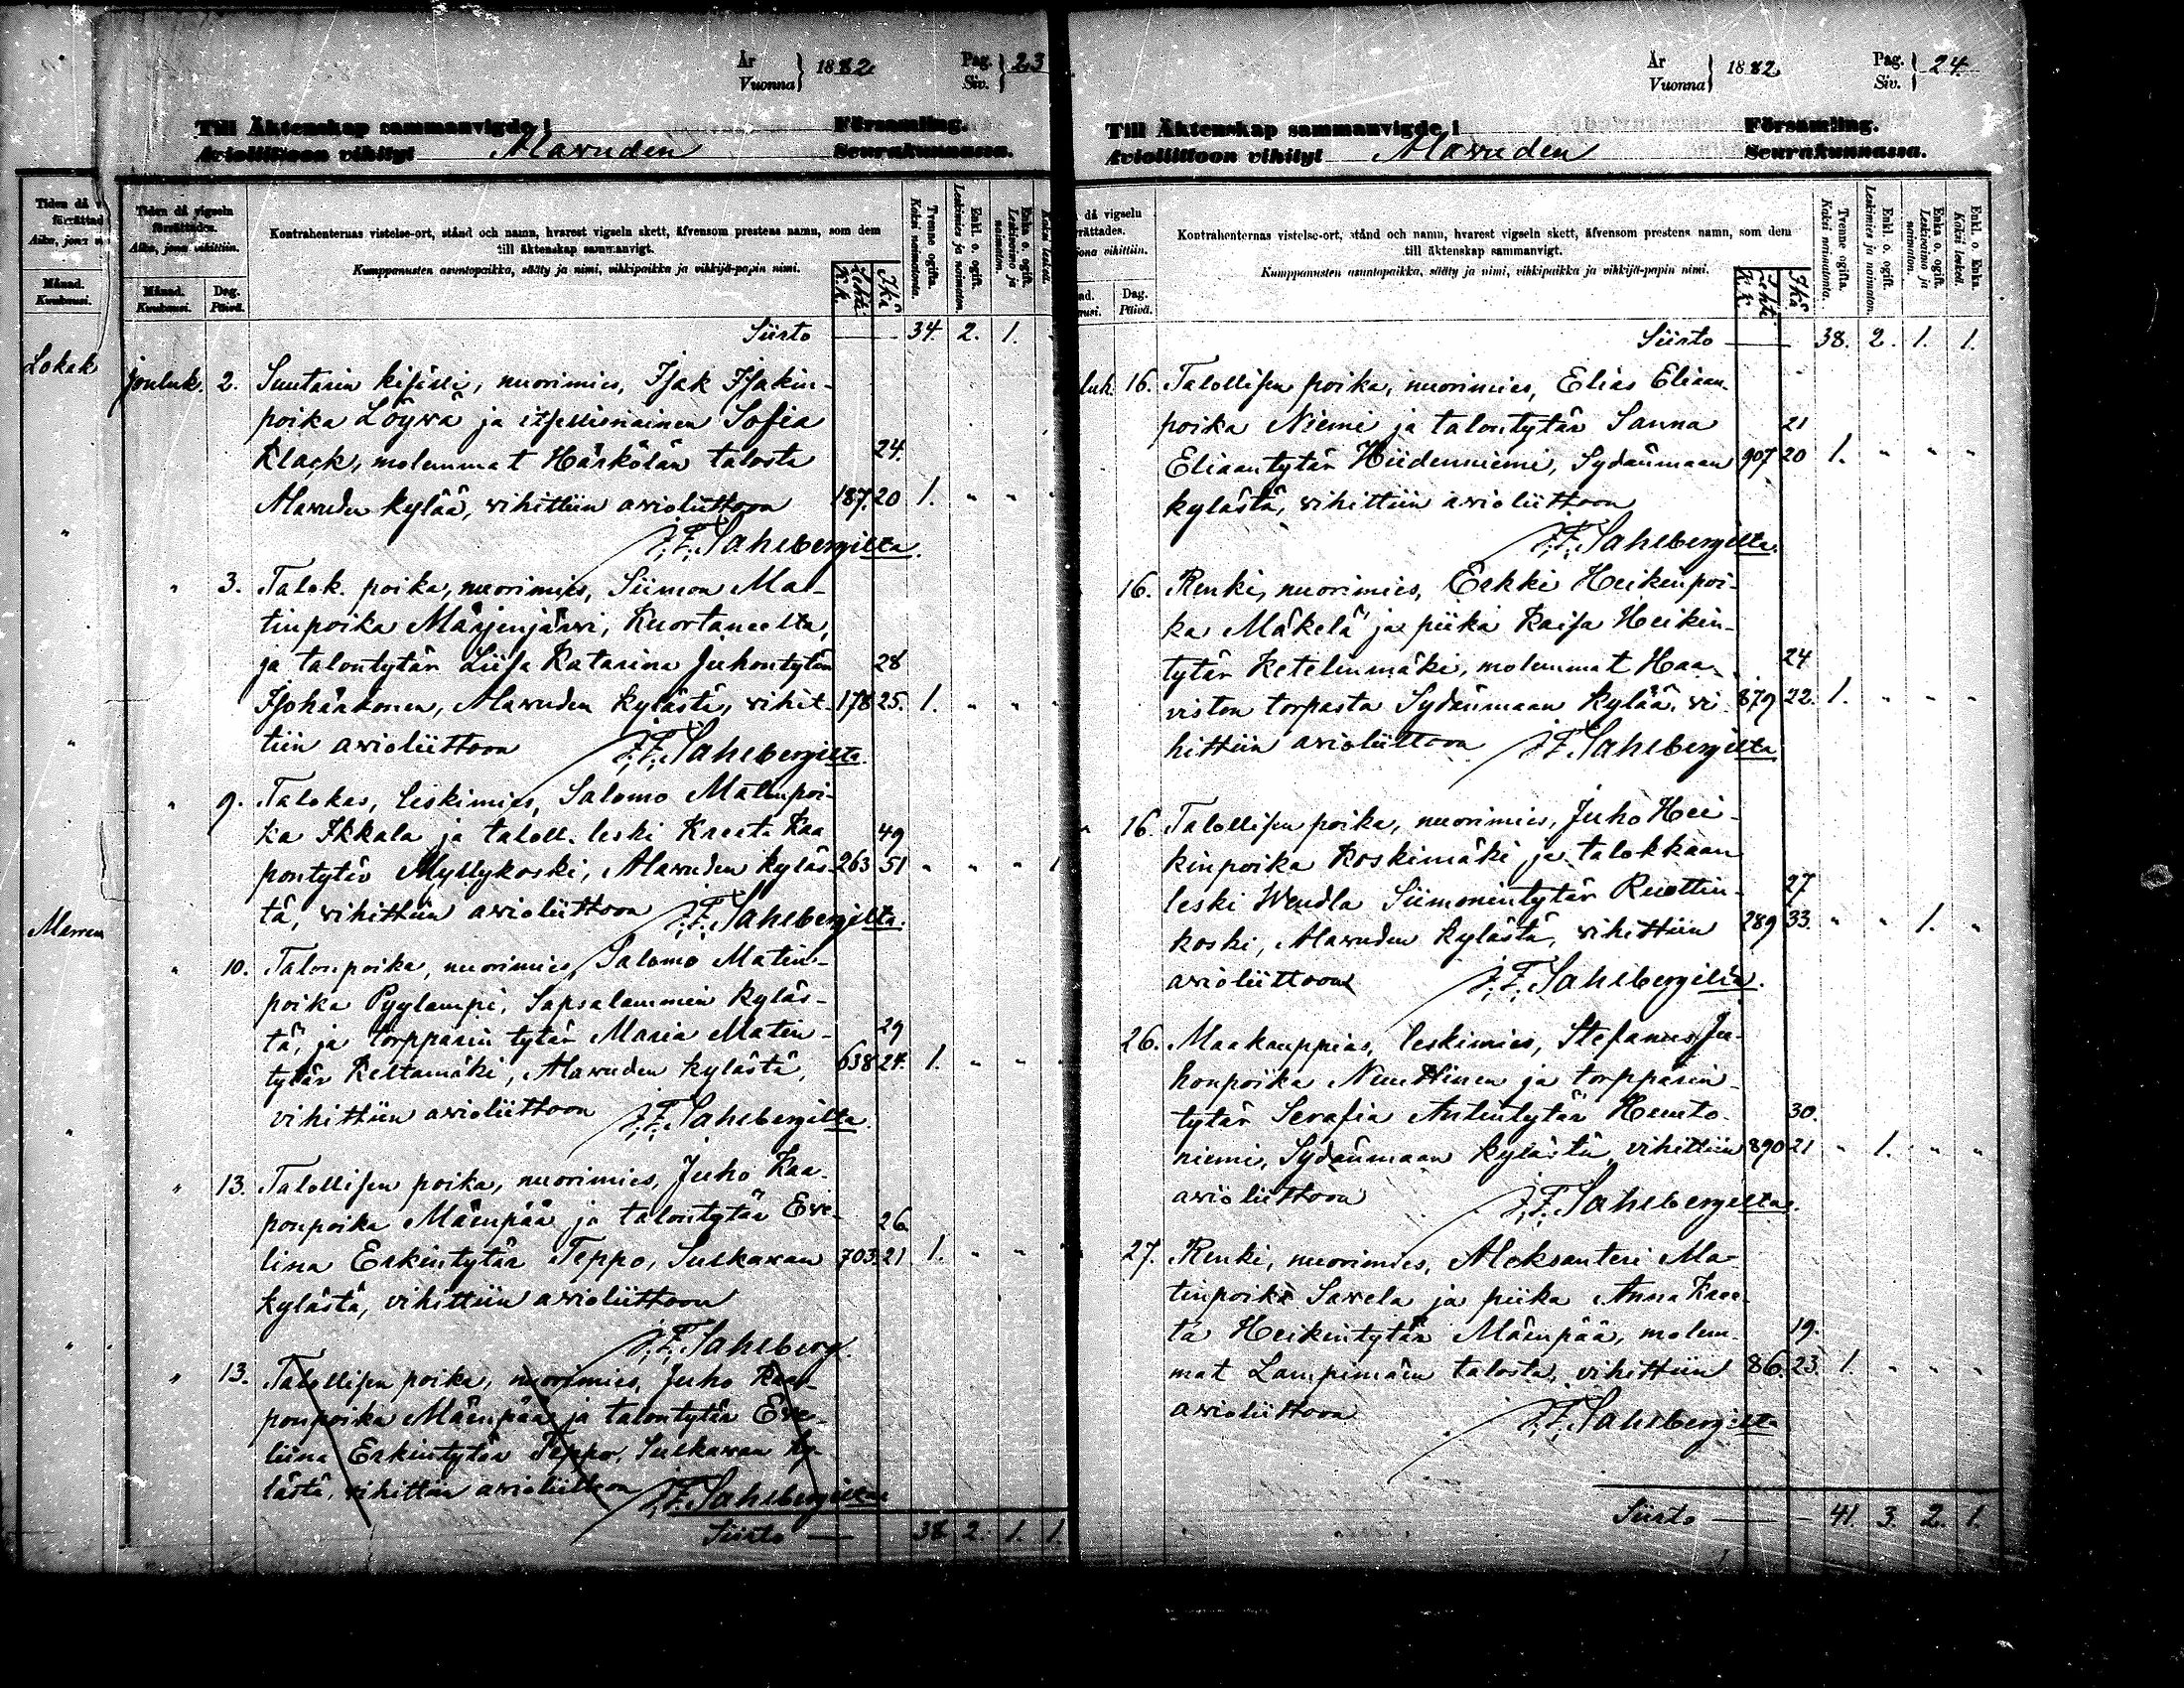 År
Vuonna } 1882
Pag.
Siv. } 23
Till Äktenskap sammanvigde i Församling.
Avioliittoon vihityt Alavuden Seurakunnassa.
Tiden då vigseln
förrättades.
Aika, jona vihittiin.
Månad.
Kuukausi.
Dag.
Päivä.
Kontrahenternas vistelse-ort, stånd och namn, hvarest vigseln skett, äfvensom prestens namn, som dem
till äktenskap sammanvigt.
Kumppanusten asuntopaikka, sääty ja nimi, vihkipaikka ja vihkijä-papin nimi.
K.k. Lehti
Ikä
Tvenne ogifta.
Kaksi naimatonta.
Enkl. o. ogift.
Leskimies ja naimaton.
Enka o. ogift.
Leskivaimo ja
naimaton.
Kaksi leskeä.
Lokak
Marras
Siirto — 34. 2. 1.
Jouluk. 2. Suutarin kisälli, nuorimies, Isak Isakin-
poika Löywä ja itsellisnainen Sofia
Klack, molemmat Härkölän talosta 24.
Alavuden kylää, vihittiin avioliittoon 187. 20 1. " "
J. F. Sahlbergilta.
" 3. Talok. poika, nuorimies, Siimon Mat-
tinpoika Märjenjärvi, Kuortaneelta,
ja talontytär Liisa Katarina Juhontytär 28
Isohärkönen, Alavuden kylästä, vihit- 178 25. 1. " "
tiin avioliittoon J. F. Sahlbergilta.
" 9. Talokas, leskimies, Salomo Matinpoi-
ka Ikkala ja taloll. leski Kreeta Kaa 49
pontytär Myllykoski, Alavuden kyläs- 263 51 " " " 1
tä, vihittiin avioliittoon J. F. Sahlbergilta.
" 10. Talonpoika, nuorimies, Salomo Matin-
poika Pyylampi, Sapsalammin kyläs-
tä, ja torpparin tytär Maria Matin- 29
tytär Keltamäki, Alavuden kylästä, 638 24. 1. " "
vihittiin avioliittoon J. F. Sahlbergilta.
" 13. Talollisen poika, nuorimies, Juho Kaa-
ponpoika Mäenpää ja talontytär Eve- 26
lina Erkintytär Teppo, Sulkavan 703. 21 1. " "
kylästä, vihittiin avioliittoon
J. F. Sahlberg.
" 13. Talollisen poika, nuorimies, Juho Kaa-
ponpoika Mäenpää ja talontytär Eve-
liina Erkintytär Teppo, Sulkavan ky-
lästä, vihittiin avioliittoon J. F. Sahlbergilta
Siirto — 38. 2. 1. 1.
År
Vuonna } 1882
Pag.
Siv. } 24
Till Äktenskap sammanvigde i Församling.
Avioliittoon vihityt Alavuden Seurakunnassa.
då vigseln
rättades.
jona vihittiin.
Dag.
Päivä.
Kontrahenternas vistelse-ort, stånd och namn, hvarest vigseln skett, äfvensom prestens namn, som dem
till äktenskap sammanvigt.
Kumppanusten asuntopaikka, sääty ja nimi, vihkipaikka ja vihkijä-papin nimi.
K.k. Lehti
Ikä
Tvenne ogifta.
Kaksi naimatonta.
Enkl. o. ogift.
Leskimies ja naimaton.
Enka o. ogift.
Leskivaimo ja
naimaton.
Enkl. o. Enka.
Kaksi leskeä.
Siirto — 38. 2. 1. 1.
luk. 16. Talollisen poika, nuorimies, Elias Eliaan-
poika Niemi ja talontytär Sanna 21
Eliaantytär Hiidenniemi, Sydänmaan 907 20 1. " " "
kylästä, vihittiin avioliittoon
J. F. Sahlbergilta.
16. Renki, nuorimies, Erkki Heikinpoi-
ka Mäkelä ja piika Kaisa Heikin-
tytär Ketelinmäki, molemmat Haa- 24
viston torpasta Sydänmaan kylää, vi- 879 22. 1. " " "
hittiin avioliittoon J. F. Sahlbergilta
" 16. Talollisen poika, nuorimies, Juho Hei-
kinpoika Koskimäki ja talokkaan
leski Wendla Siimonintytär Ruottin- 27
koski, Alavuden kylästä, vihittiin 289 33. " " 1. "
avioliittoon J. F. Sahlbergilta.
26. Maakauppias, leskimies, Stefanus Ju-
honpoika Nuuttinen ja torpparin-
tytär Serafia Antintytär Huuto- 30.
niemi, Sydänmaan kylästä, vihittiin 890 21 " 1. " "
avioliittoon J. F. Sahlbergilta.
27. Renki, nuorimies, Aleksanteri Ma-
tinpoika Savela ja piika Anna Kaa-
ta Heikintytär Mäenpää, molem- 19.
mat Lampimäen talosta, vihittiin 86. 23. 1. " " "
avioliittoon J. F. Sahlbergilta
Siirto — 41. 3. 2. 1.